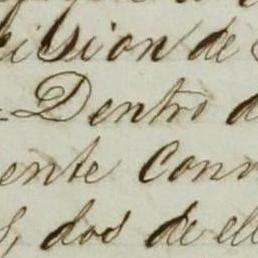 cision de
Dentro d
ente Conv
s, dos de ell